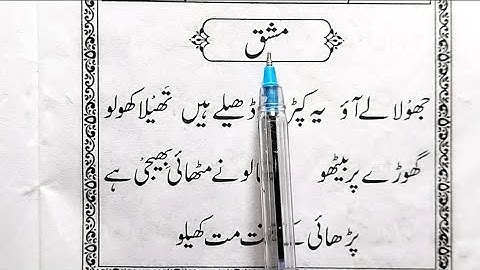 مشق
جھولا لے آؤ یہ ڈھیلے ہیں تھیلا کھولو
گھوڑے پر بیٹھو نے مٹھائی بھیجی ہے
پڑھائی مت کھیلو